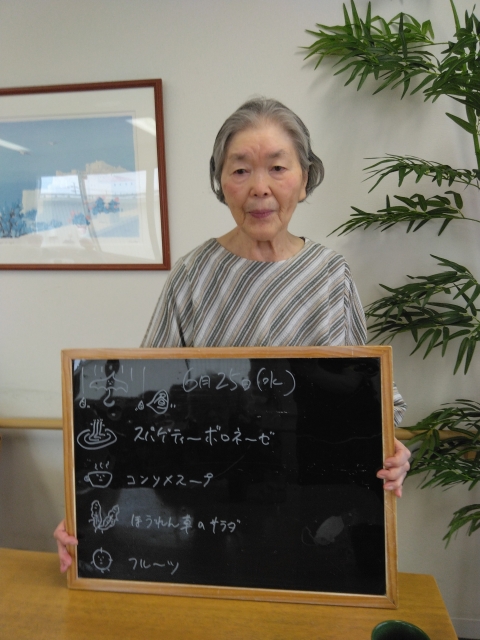 6月25日(水)
昼
スパゲティーボロネーゼ
コンソメスープ
ほうれん草のサラダ
フルーツ